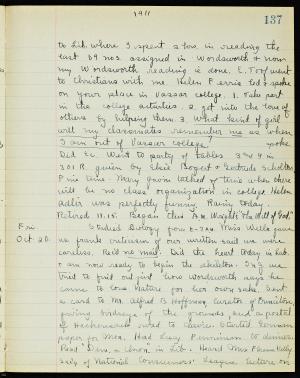 1911
137
to Lib. where I spent 2 hrs. in reading the
last 69 nos assigned in Wordsworth & now
my Wordsworth reading is done. E. Toof went
to Christians with me Helen Ferris led & spoke
on your place in Vassar college. 1. Take part
in the college activities. 2 get into the lives of
others by helping them 3 What kind of girl
will my classmates remember me as when
I am out of Vassar college. spoke
Went to party of tables 3 and 4 in
301 R. given by Chris Bogart & Gertrude
in time. Mary talked & this when there
will be no class organization in college. Helen
Adler was perfectly funny. Rainy today.
Retired 11.15. Began "The Will of God."
Fri.
Oct 20.
Studied Biology from Miss Wells gave
us frank extension of our written said we were
careless. Did the heart today in lab.
& am now ready to begin the skeleton. In Eng we
tried to find out just how Wordsworth says he
came to love nature for her own sake. Sent
a card to Mr. Alfred B Hoffman, Curator of
giving birdseye of the grounds and a postal
of used to Started German
paper for Mon. Had easy in
Read in Lib. Heard Mrs Florence Kelley
Sec'y of National Consumers' League lecture on